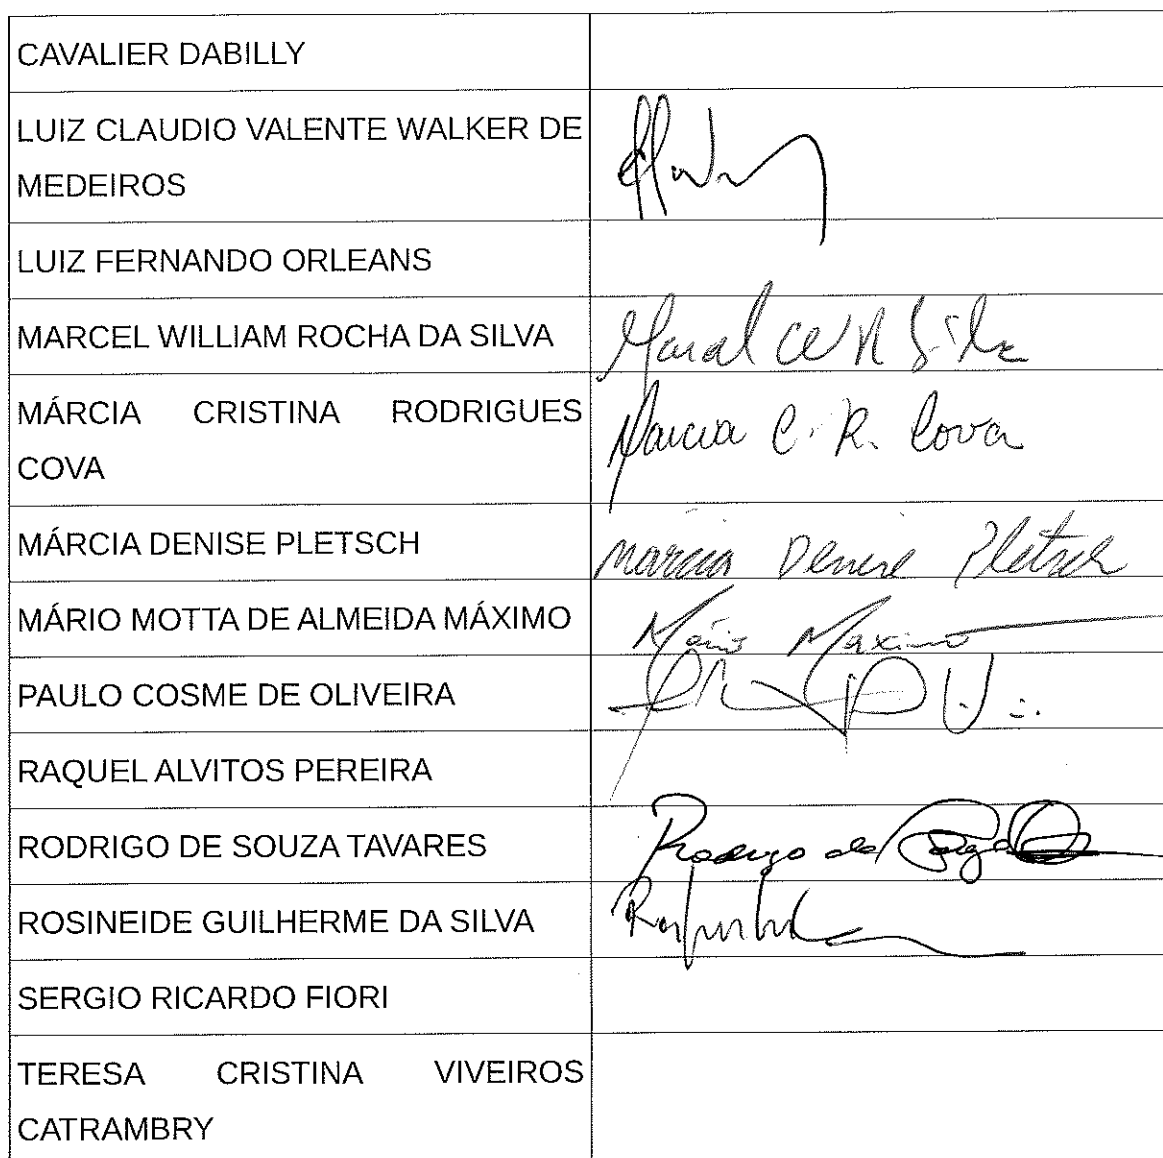 CAVALIER DABILLY
LUIZ CLAUDIO VALENTE WALKER DE
MEDEIROS
LUIZ FERNANDO ORLEANS
MARCEL WILLIAM ROCHA DA SILVA
MÁRCIA CRISTINA RODRIGUES
Marcia C. R. Cova
COVA
MÁRCIA DENISE PLETSCH Marcia Denise Pletsch
MÁRIO MOTTA DE ALMEIDA MÁXIMO Mário Maximo
PAULO COSME DE OLIVEIRA
RAQUEL ALVITOS PEREIRA
RODRIGO DE SOUZA TAVARES Rodrigo de
ROSINEIDE GUILHERME DA SILVA
SERGIO RICARDO FIORI
TERESA CRISTINA VIVEIROS
CATRAMBRY